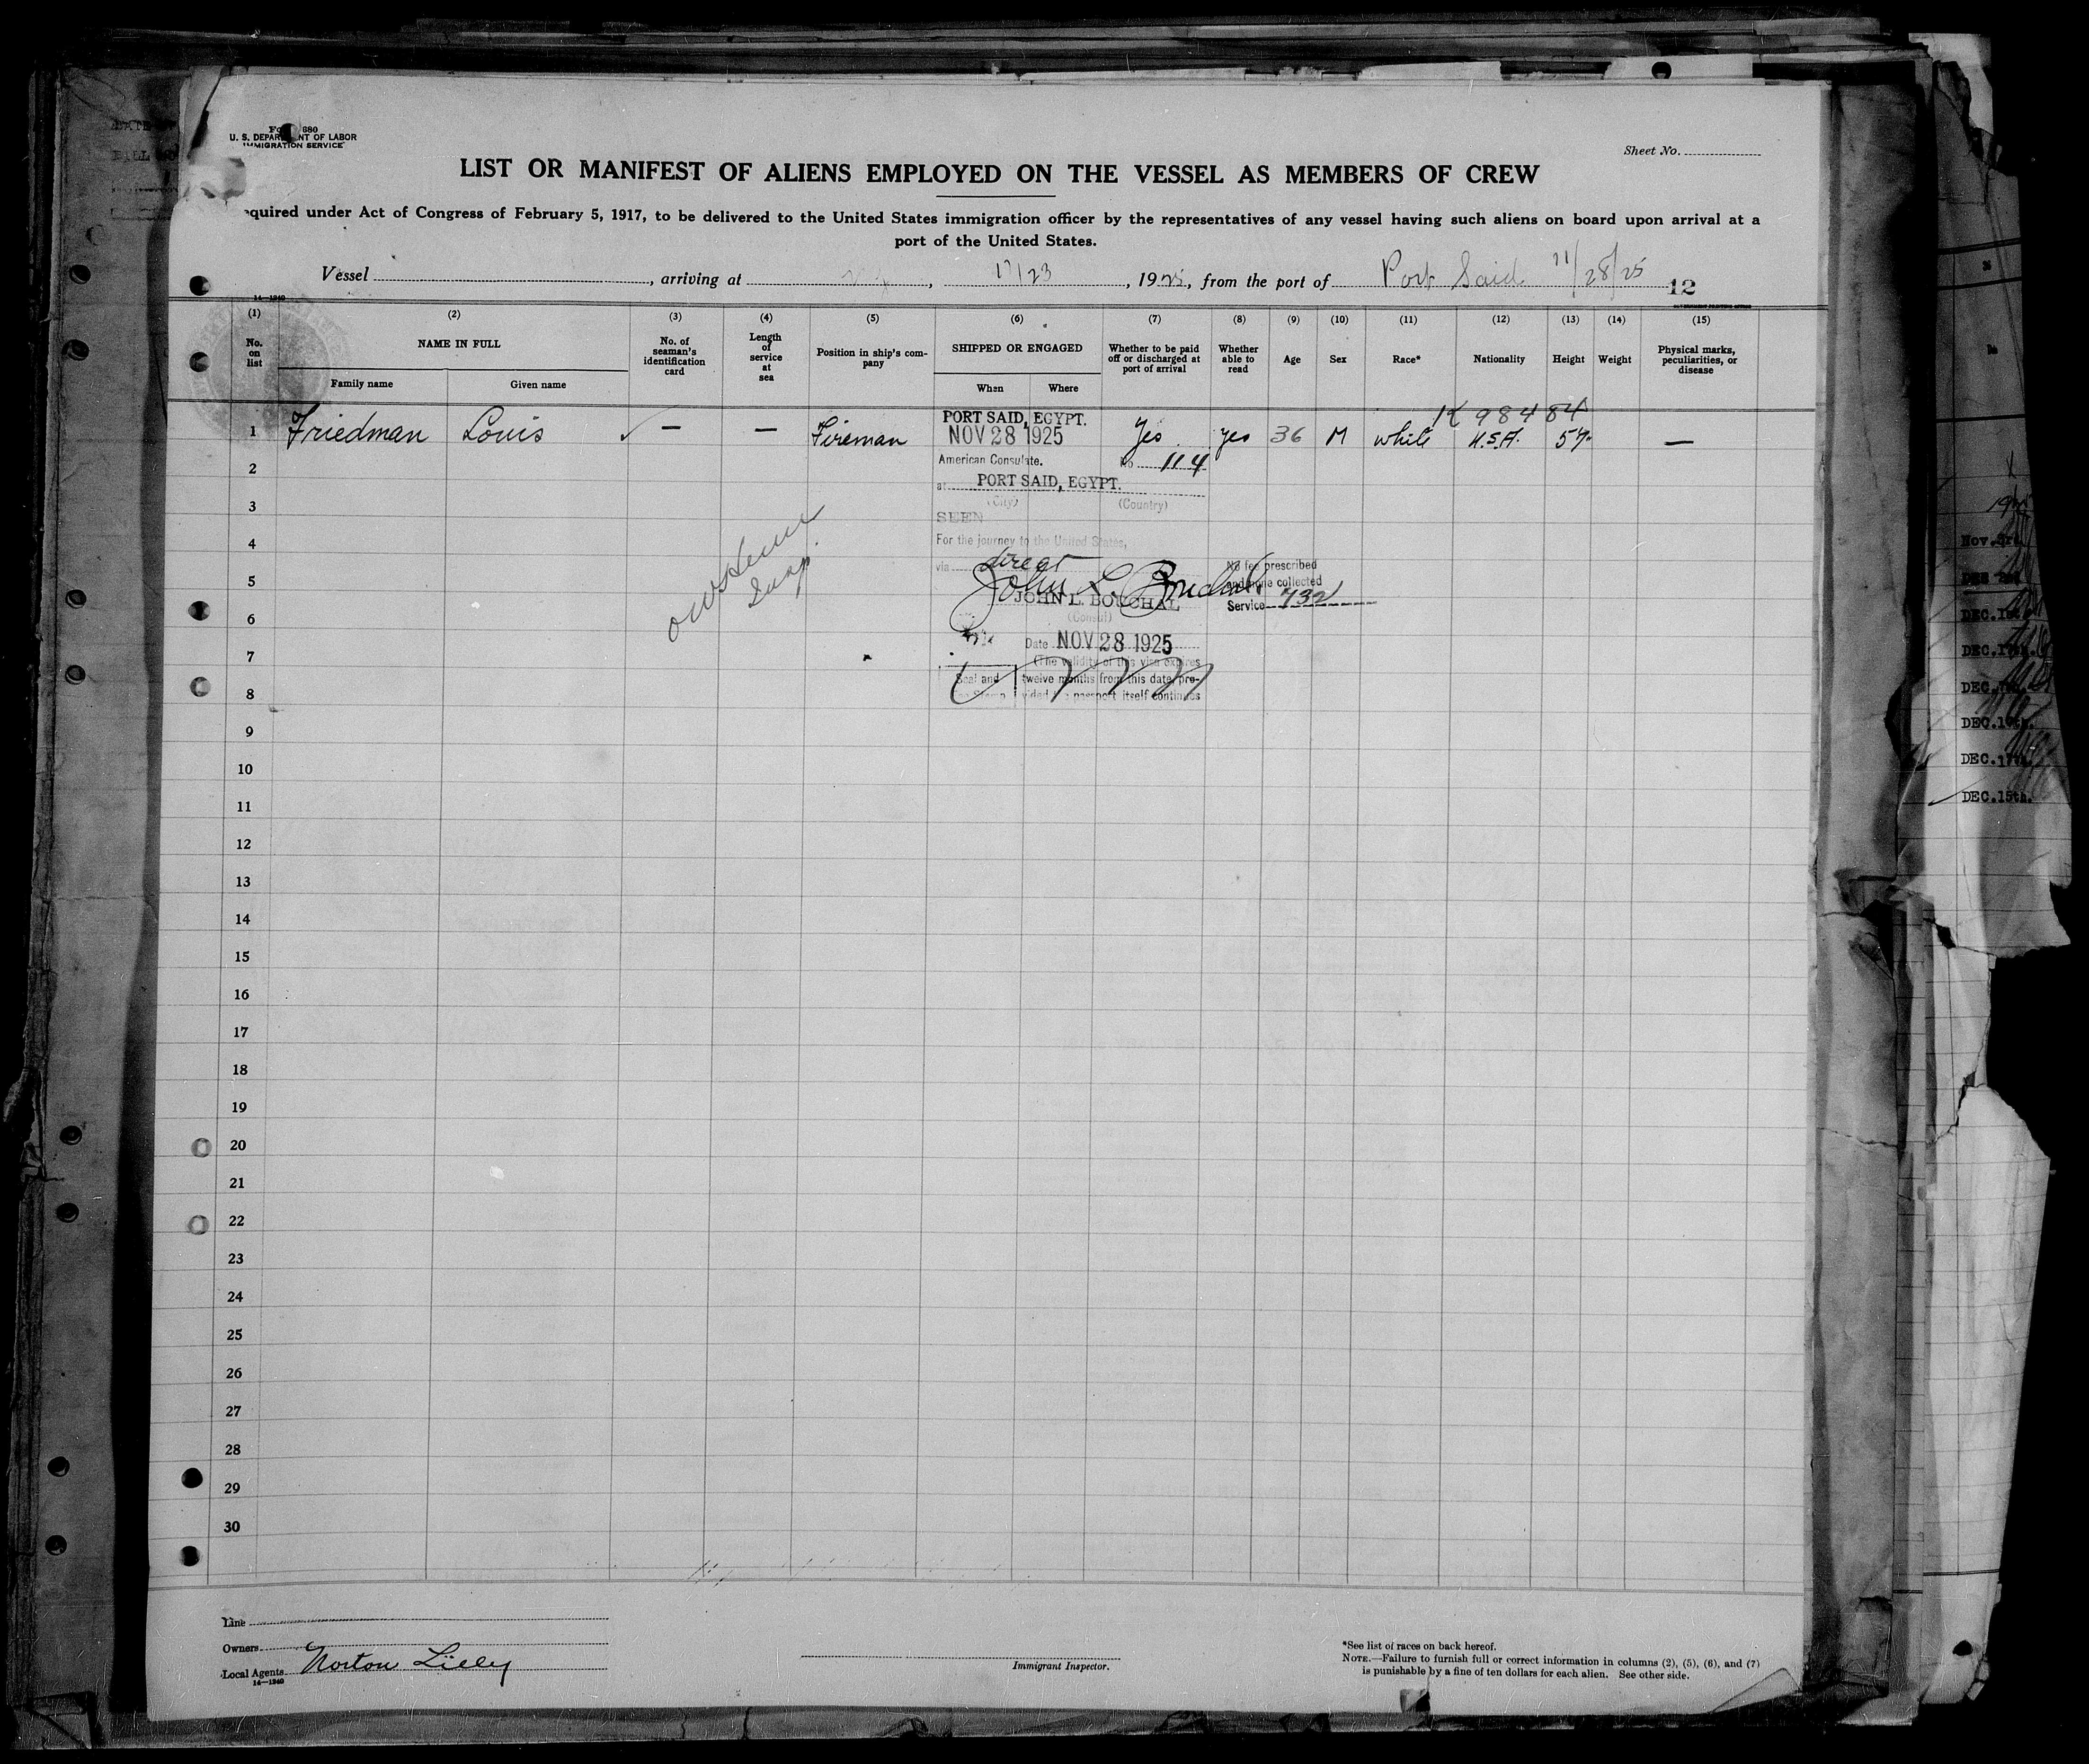 U. S. DEPARTMENT OF LABOR
IMMIGRATION SERVICE
Sheet No.
LIST OR MANIFEST OF ALIENS EMPLOYED ON THE VESSEL AS MEMBERS OF CREW
equired under Act of Congress of February 5, 1917, to be delivered to the United States immigration officer by the representatives of any vessel having such aliens on board upon arrival at a
port of the United States.
Vessel , arriving at , 12/23 , 1925, from the port of Port Said 11/28/25 12
14—1240
(1) (2) (3) (4) (5) (6) (7) (8) (9) (10) (11) (12) (13) (14) (15)
No. on list
NAME IN FULL
Family name Given name
No. of seaman's identification card
Length of service at sea
Position in ship's company
SHIPPED OR ENGAGED
When Where
Whether to be paid off or discharged at port of arrival
Whether able to read
Age
Sex
Race*
Nationality
Height
Weight
Physical marks, peculiarities, or disease
K 98484
PORT SAID, EGYPT.
1 Friedman Louis ✓ — — Fireman NOV 28 1925 Yes yes 36 M white U.S.A. 57 —
American Consulate. No. 114
2
at PORT SAID, EGYPT.
(City) (Country)
3
SEEN
4
For the journey to the United States,
via direct
No fee prescribed
5
and none collected
John L. Bouchal
JOHN L. BOUCHAL
Service 732
(Consul)
6
Date NOV 28 1925
7
(The validity of this visa expires
Seal and twelve months from this date, pro-
8
vided the passport itself continues
9
10
11
12
13
14
15
16
17
18
19
20
21
22
23
24
25
26
27
28
29
30
Line
Owners
Local Agents Norton Lilly
14—1240
Immigrant Inspector.
*See list of races on back hereof.
NOTE.—Failure to furnish full or correct information in columns (2), (5), (6), and (7)
is punishable by a fine of ten dollars for each alien. See other side.
Nov. 3rd.
DEC.17th.
DEC.15th.